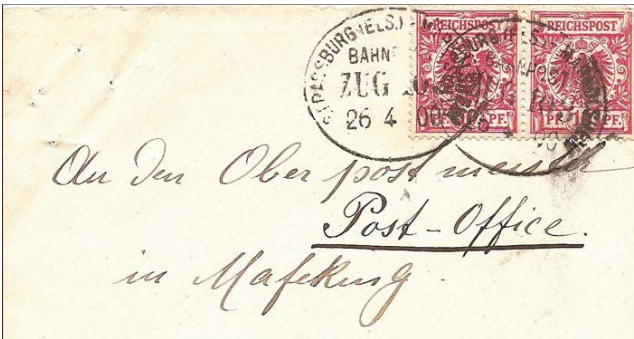 STRASSBURG (ELS.)
BAHN
ZUG
26 4 00
REICHSPOST REICHSPOST
PF. PF. 10 PF.
An den Oberpostmeister
Post-Office.
in Mafeking.